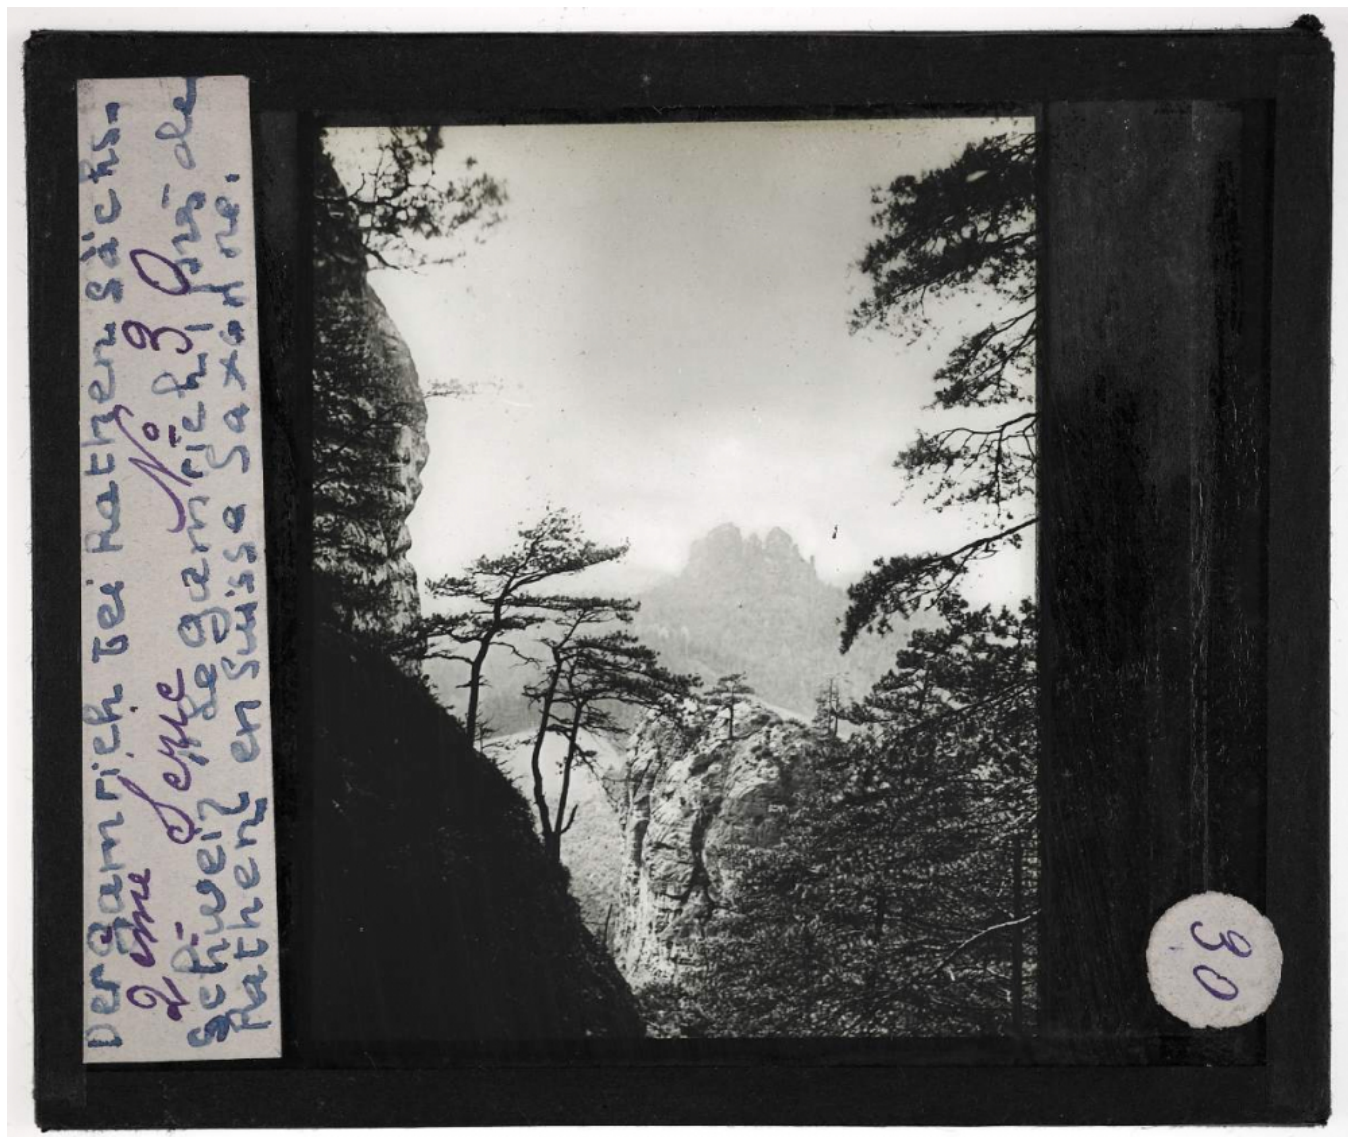 Der Gamrich bei Rathen Sächs.
2 ème Serie No 30
Schweiz Le Gamrich près de
Rathen en Suisse Saxonne.
30